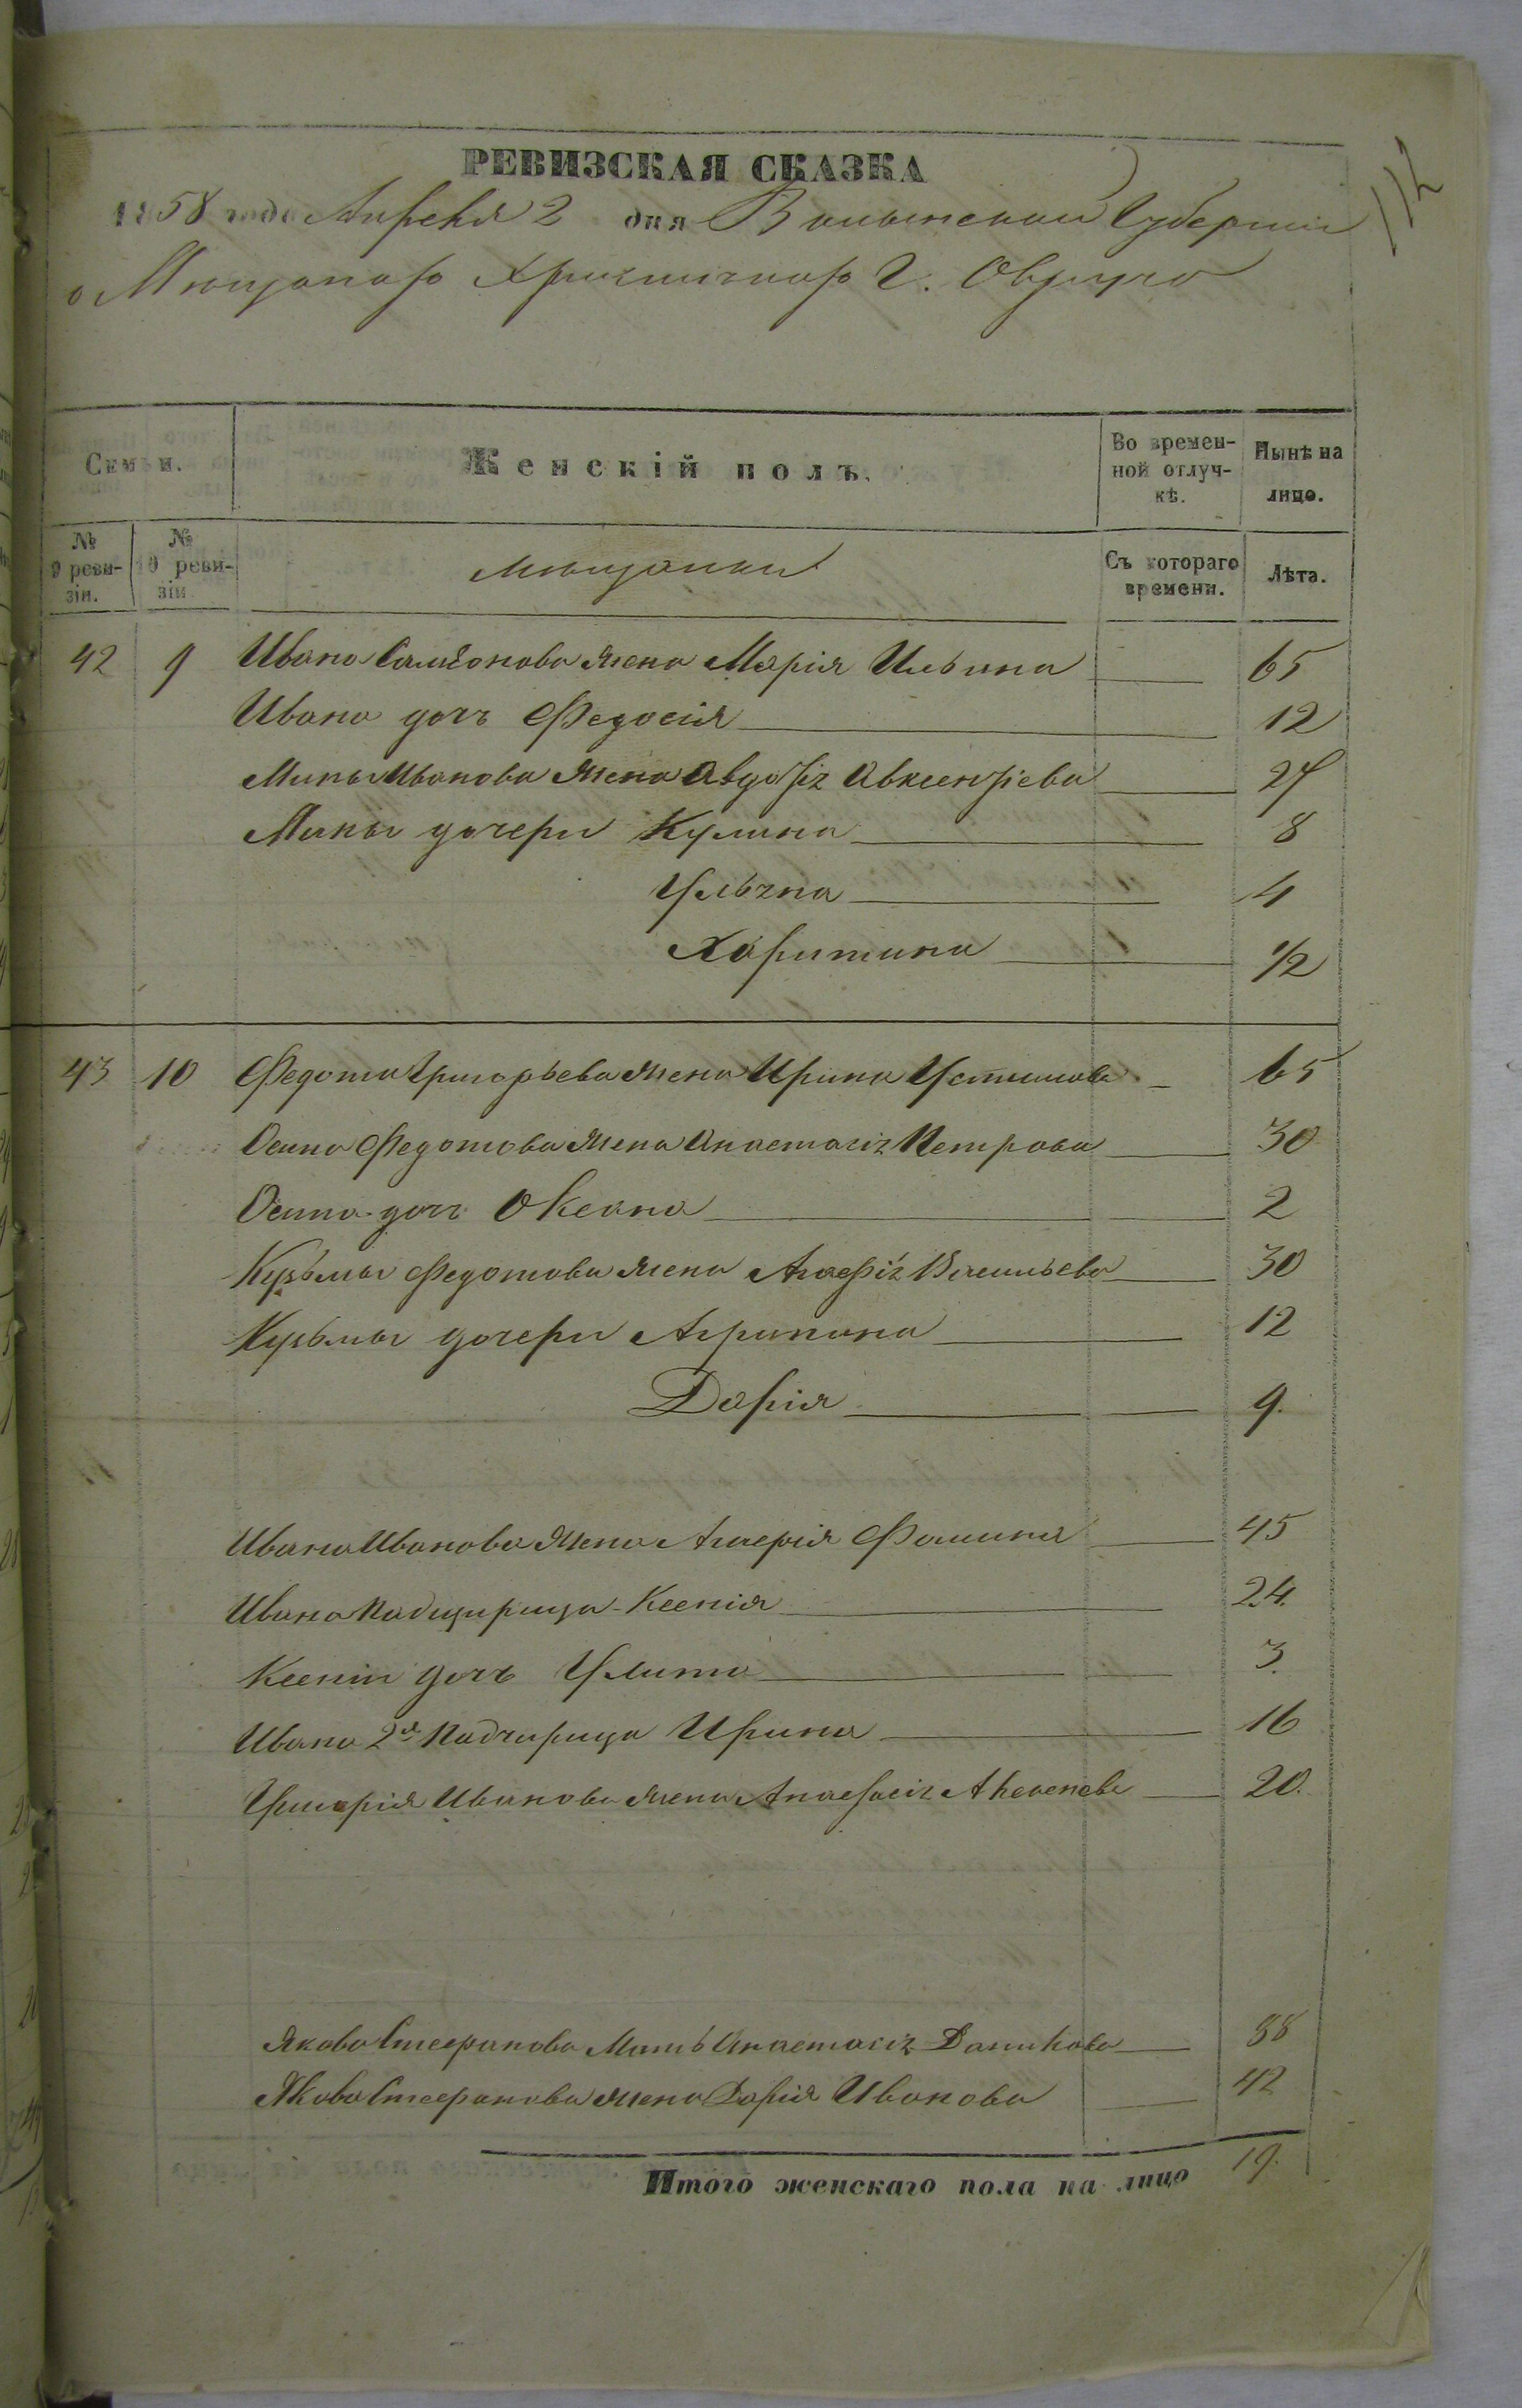 112
РЕВИЗСКАЯ СКАЗКА
1858 года Апреля 2 дня Волынской Губернии
о Мещанахъ Христианахъ Г. Овруча
Семьи.
Женскій полъ.
Во времен-
ной отлуч-
кѣ.
Нынѣ на
лицо.
№
9 реви-
зіи.
№
10 реви-
зіи
мещанки
Съ котораго
времени.
Лѣта.
42 9 Ивана Самсонова жена Марія Ильина 65
Ивана дочь Федосія 12
Мины Иванова жена Авдотія Авксентіева 27
Мины дочери Кулина 8
Ульяна 4
Харитина 1/2
43 10 Федота Григорьева жена Ирина Устинова 65
Осипа Федотова жена Анастасія Петрова 30
Осипа дочь Оксана 2
Кузьмы Федотова жена Агафія Васильева 30
Кузьмы дочери Агрипина 12
Дарія 9.
Ивана Иванова жена Фомина 45
Ивана Падщирица Ксенія 24.
Ксеніи дочь Улита 3.
Ивана 2я Падчирица Ирина 16
Иванова жена 20.
Якова Стефанова Мать Анастасія Данилова 88
Якова Стефанова жена Дарія Иванова 42
Итого женскаго пола на лицо 19.